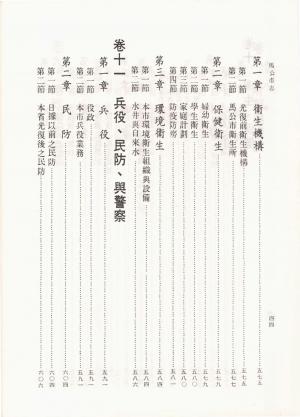 馬公市志
四四
第一章 衛生機構……五七五
第一節 光復前衛生機構……五七五
第二節 馬公市衛生所……五七七
第二章 保健衛生……五七九
第一節 婦幼衛生……五七九
第二節 學生衛生……五七九
第三節 家庭計劃……五八〇
第四節 防疫防癆……五八一
第三章 環境衛生……五八四
第一節 本市環境衛生組織與設備……五八四
第二節 水井與自來水……五八六
卷十一 兵役、民防、與警察
第一章 兵役……五九一
第一節 役政……五九一
第二節 本市兵役業務……五九一
第二章 民防……六〇四
第一節 日據以前之民防……六〇四
第二節 本省光復後之民防……六〇六